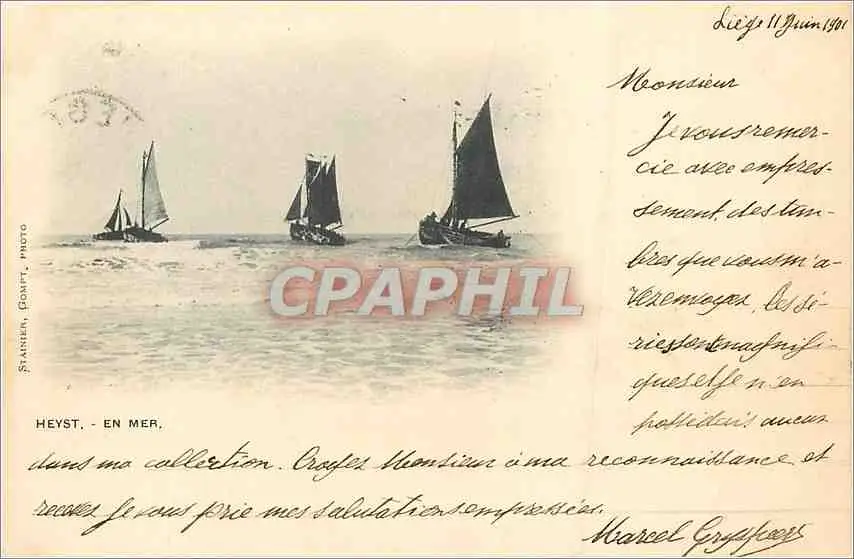 Liége 11 Juin 1901
Monsieur
Je vous remer-
cie avec empres-
sement, des tim-
bres que vous m'a-
vez envoyes. Ces sé-
ries sont magnifi-
ques et je n'en
possédais aucun
dans ma collection. Croyez Monsieur à ma reconnaissance et
recevez je vous prie mes salutations empressées.
Marcel
STAINIER, GOMPT, PHOTO
CPAPHIL
HEYST. - EN MER.